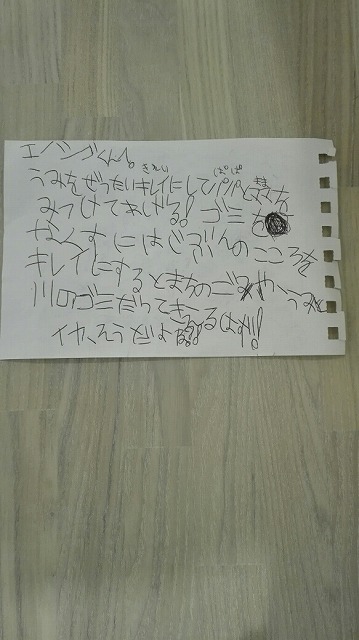 エバンゲくん。
きれい ぱぱ まま
うみをぜったいキレイにしてパパとママを
みつけてあげる! ゴミを
なくすにはじぶんのこころを
キレイにするとまちのゴミや、うみと
川のゴミだってきえるはず!
イヤ、そうだよ!